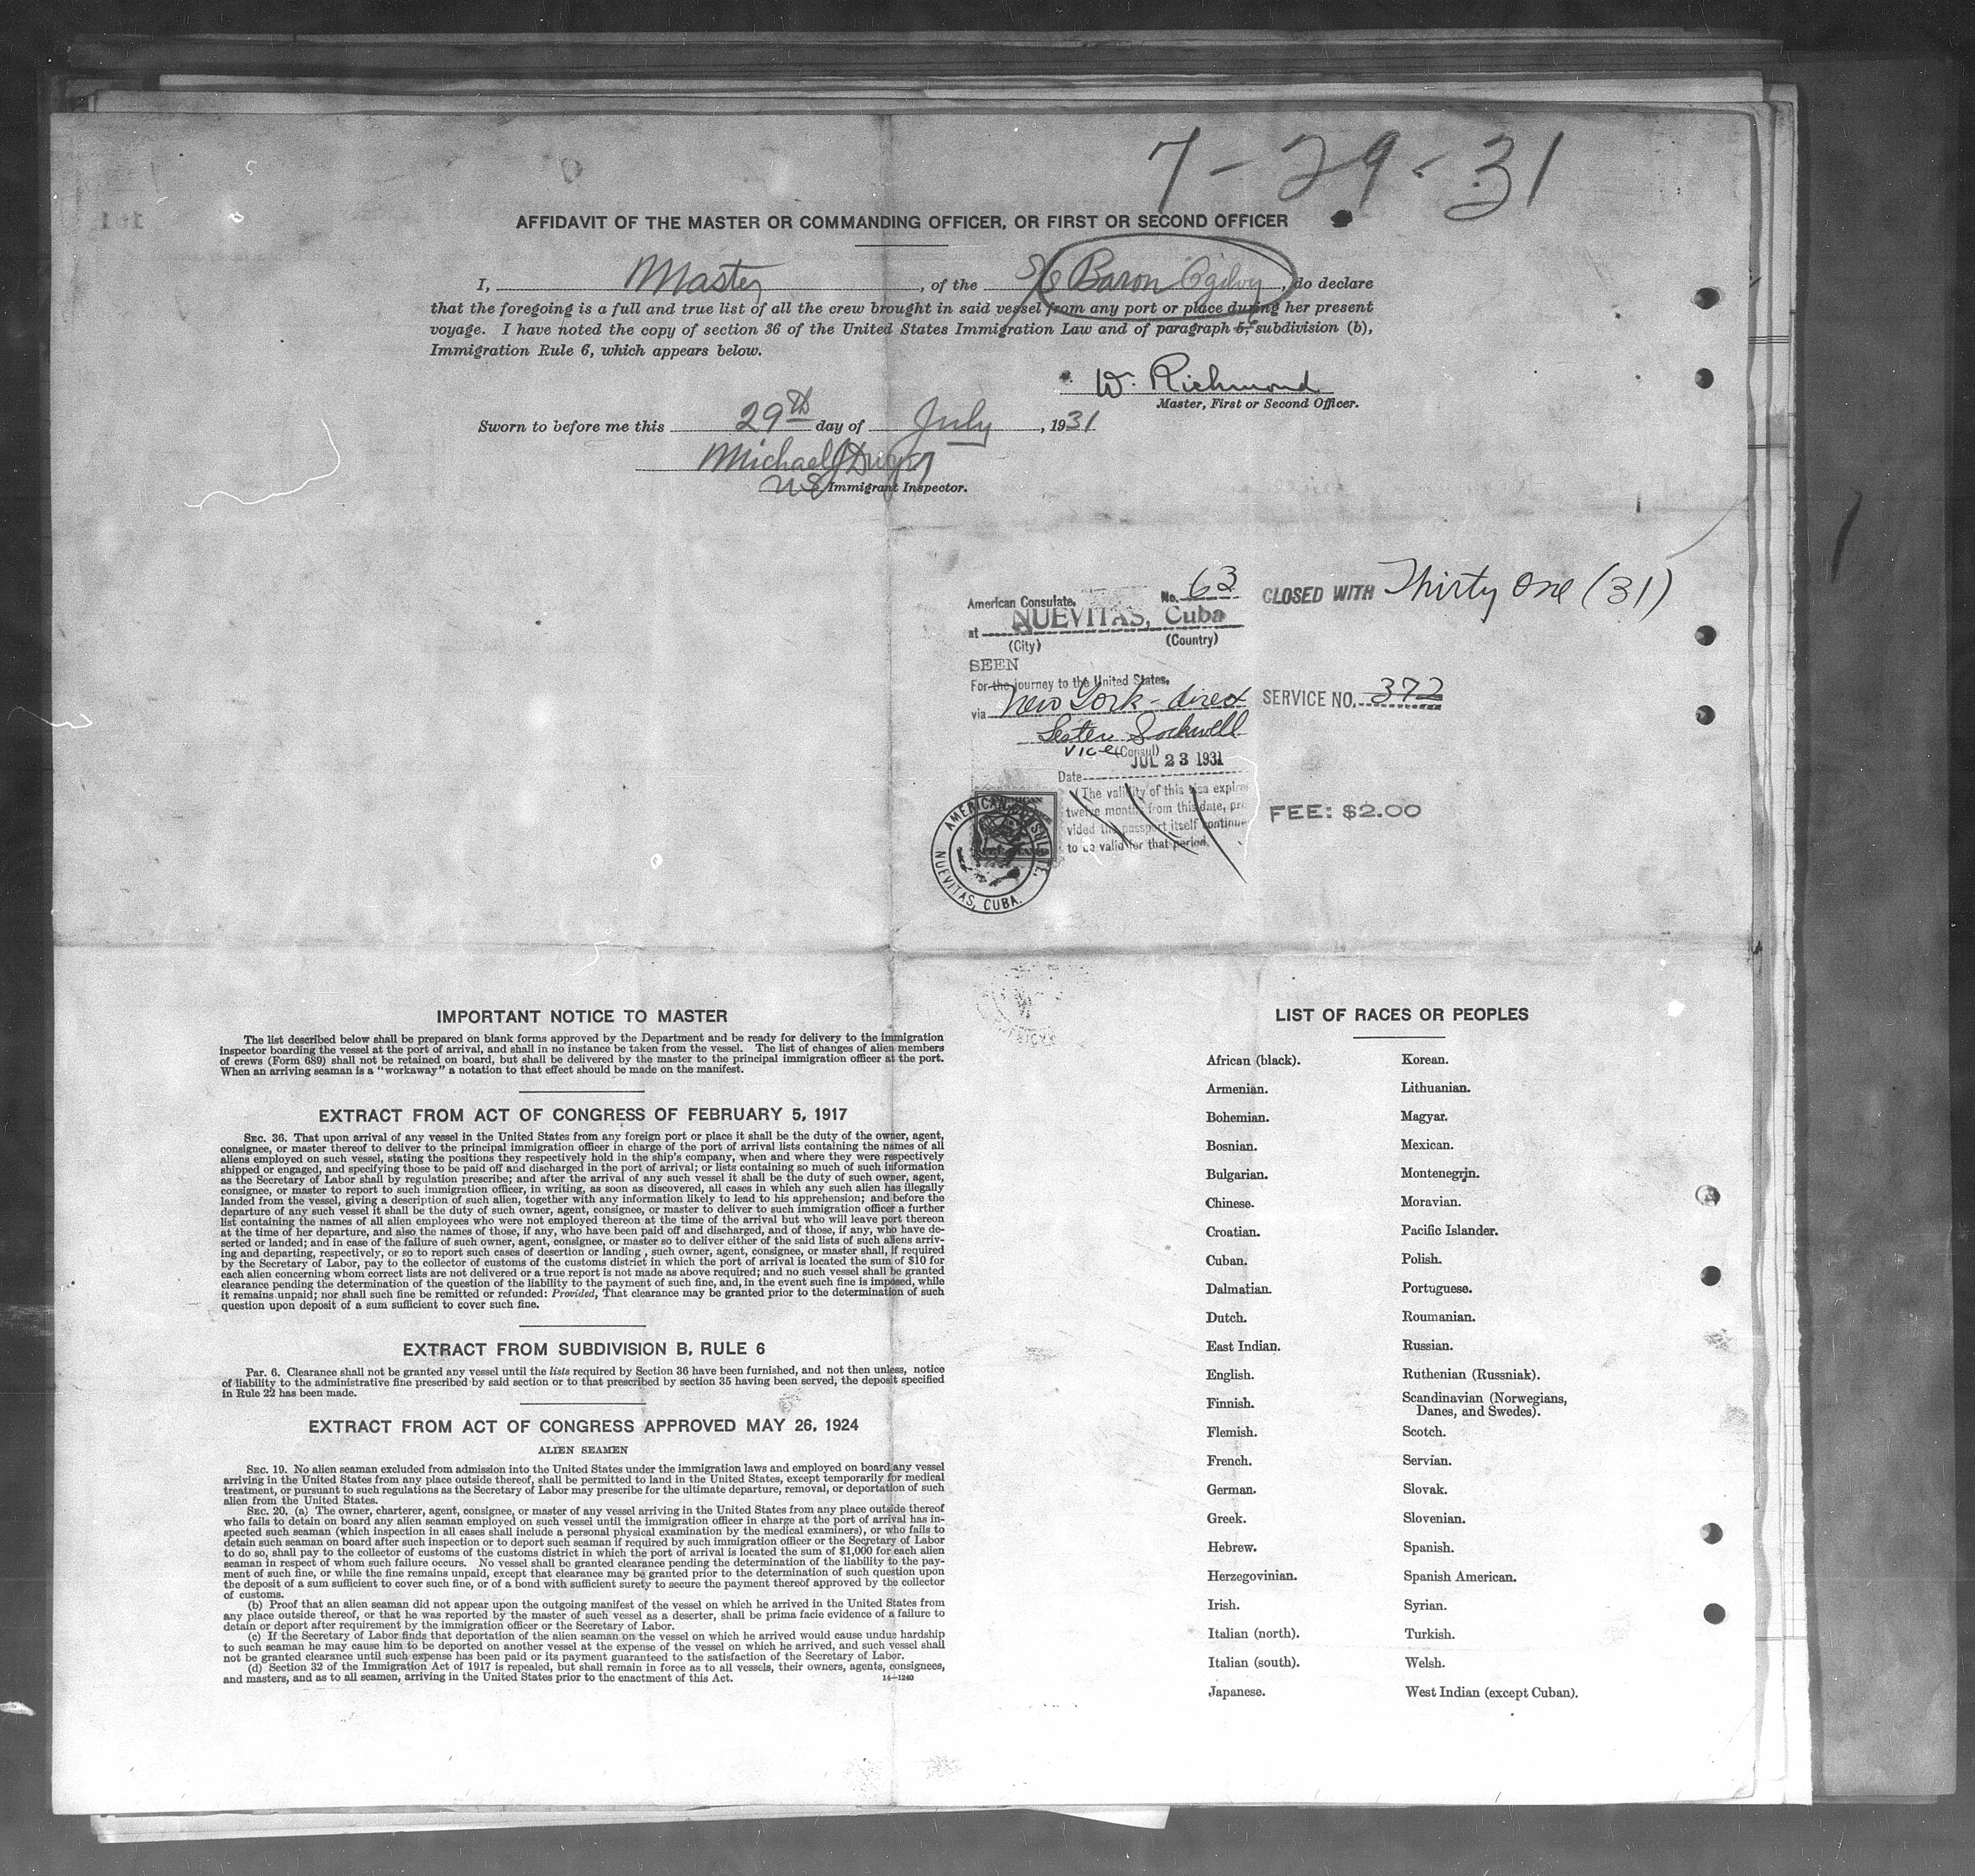 7-29-31
AFFIDAVIT OF THE MASTER OR COMMANDING OFFICER, OR FIRST OR SECOND OFFICER
I, Master, of the S/S Baron Ogilvy, do declare
that the foregoing is a full and true list of all the crew brought in said vessel from any port or place during her present
voyage. I have noted the copy of section 36 of the United States Immigration Law and of paragraph 5, 6 subdivision (b),
Immigration Rule 6, which appears below.
W. Richmond
Master, First or Second Officer.
Sworn to before me this 29th day of July, 1931
Michael J Dwyer
US Immigrant Inspector.
American Consulate, No. 63 CLOSED WITH Thirty One (31)
at NUEVITAS, Cuba
(City) (Country)
SEEN
For the journey to the United States,
via New York - direct SERVICE NO. 372
Lester Sockwell
Vice (Consul)
JUL 23 1931
Date
(The validity of this visa expires
twelve months from this date, pro
vided the passport itself continue
to be valid for that period.
FEE: $2.00
AMERICAN CONSULATE.
NUEVITAS, CUBA.
IMPORTANT NOTICE TO MASTER
The list described below shall be prepared on blank forms approved by the Department and be ready for delivery to the immigration
inspector boarding the vessel at the port of arrival, and shall in no instance be taken from the vessel. The list of changes of alien members
of crews (Form 689) shall not be retained on board, but shall be delivered by the master to the principal immigration officer at the port.
When an arriving seaman is a "workaway" a notation to that effect should be made on the manifest.
EXTRACT FROM ACT OF CONGRESS OF FEBRUARY 5, 1917
SEC. 36. That upon arrival of any vessel in the United States from any foreign port or place it shall be the duty of the owner, agent,
consignee, or master thereof to deliver to the principal immigration officer in charge of the port of arrival lists containing the names of all
aliens employed on such vessel, stating the positions they respectively hold in the ship's company, when and where they were respectively
shipped or engaged, and specifying those to be paid off and discharged in the port of arrival; or lists containing so much of such information
as the Secretary of Labor shall by regulation prescribe; and after the arrival of any such vessel it shall be the duty of such owner, agent,
consignee, or master to report to such immigration officer, in writing, as soon as discovered, all cases in which any such alien has illegally
landed from the vessel, giving a description of such alien, together with any information likely to lead to his apprehension; and before the
departure of any such vessel it shall be the duty of such owner, agent, consignee, or master to deliver to such immigration officer a further
list containing the names of all alien employees who were not employed thereon at the time of the arrival but who will leave port thereon
at the time of her departure, and also the names of those, if any, who have been paid off and discharged, and of those, if any, who have de-
serted or landed; and in case of the failure of such owner, agent, consignee, or master so to deliver either of the said lists of such aliens arriv-
ing and departing, respectively, or so to report such cases of desertion or landing, such owner, agent, consignee, or master shall, if required
by the Secretary of Labor, pay to the collector of customs of the customs district in which the port of arrival is located the sum of $10 for
each alien concerning whom correct lists are not delivered or a true report is not made as above required; and no such vessel shall be granted
clearance pending the determination of the question of the liability to the payment of such fine, and, in the event such fine is imposed, while
it remains unpaid; nor shall such fine be remitted or refunded: Provided, That clearance may be granted prior to the determination of such
question upon deposit of a sum sufficient to cover such fine.
EXTRACT FROM SUBDIVISION B, RULE 6
Par. 6. Clearance shall not be granted any vessel until the lists required by Section 36 have been furnished, and not then unless, notice
of liability to the administrative fine prescribed by said section or to that prescribed by section 35 having been served, the deposit specified
in Rule 22 has been made.
EXTRACT FROM ACT OF CONGRESS APPROVED MAY 26, 1924
ALIEN SEAMEN
SEC. 19. No alien seaman excluded from admission into the United States under the immigration laws and employed on board any vessel
arriving in the United States from any place outside thereof, shall be permitted to land in the United States, except temporarily for medical
treatment, or pursuant to such regulations as the Secretary of Labor may prescribe for the ultimate departure, removal, or deportation of such
alien from the United States.
SEC. 20. (a) The owner, charterer, agent, consignee, or master of any vessel arriving in the United States from any place outside thereof
who fails to detain on board any alien seaman employed on such vessel until the immigration officer in charge at the port of arrival has in-
spected such seaman (which inspection in all cases shall include a personal physical examination by the medical examiners), or who fails to
detain such seaman on board after such inspection or to deport such seaman if required by such immigration officer or the Secretary of Labor
to do so, shall pay to the collector of customs of the customs district in which the port of arrival is located the sum of $1,000 for each alien
seaman in respect of whom such failure occurs. No vessel shall be granted clearance pending the determination of the liability to the pay-
ment of such fine, or while the fine remains unpaid, except that clearance may be granted prior to the determination of such question upon
the deposit of a sum sufficient to cover such fine, or of a bond with sufficient surety to secure the payment thereof approved by the collector
of customs.
(b) Proof that an alien seaman did not appear upon the outgoing manifest of the vessel on which he arrived in the United States from
any place outside thereof, or that he was reported by the master of such vessel as a deserter, shall be prima facie evidence of a failure to
detain or deport after requirement by the immigration officer or the Secretary of Labor.
(c) If the Secretary of Labor finds that deportation of the alien seaman on the vessel on which he arrived would cause undue hardship
to such seaman he may cause him to be deported on another vessel at the expense of the vessel on which he arrived, and such vessel shall
not be granted clearance until such expense has been paid or its payment guaranteed to the satisfaction of the Secretary of Labor.
(d) Section 32 of the Immigration Act of 1917 is repealed, but shall remain in force as to all vessels, their owners, agents, consignees,
and masters, and as to all seamen, arriving in the United States prior to the enactment of this Act. 14-1240
LIST OF RACES OR PEOPLES
African (black). Korean.
Armenian. Lithuanian.
Bohemian. Magyar.
Bosnian. Mexican.
Bulgarian. Montenegrin.
Chinese. Moravian.
Croatian. Pacific Islander.
Cuban. Polish.
Dalmatian. Portuguese.
Dutch. Roumanian.
East Indian. Russian.
English. Ruthenian (Russniak).
Finnish. Scandinavian (Norwegians,
Danes, and Swedes).
Flemish. Scotch.
French. Servian.
German. Slovak.
Greek. Slovenian.
Hebrew. Spanish.
Herzegovinian. Spanish American.
Irish. Syrian.
Italian (north). Turkish.
Italian (south). Welsh.
Japanese. West Indian (except Cuban).